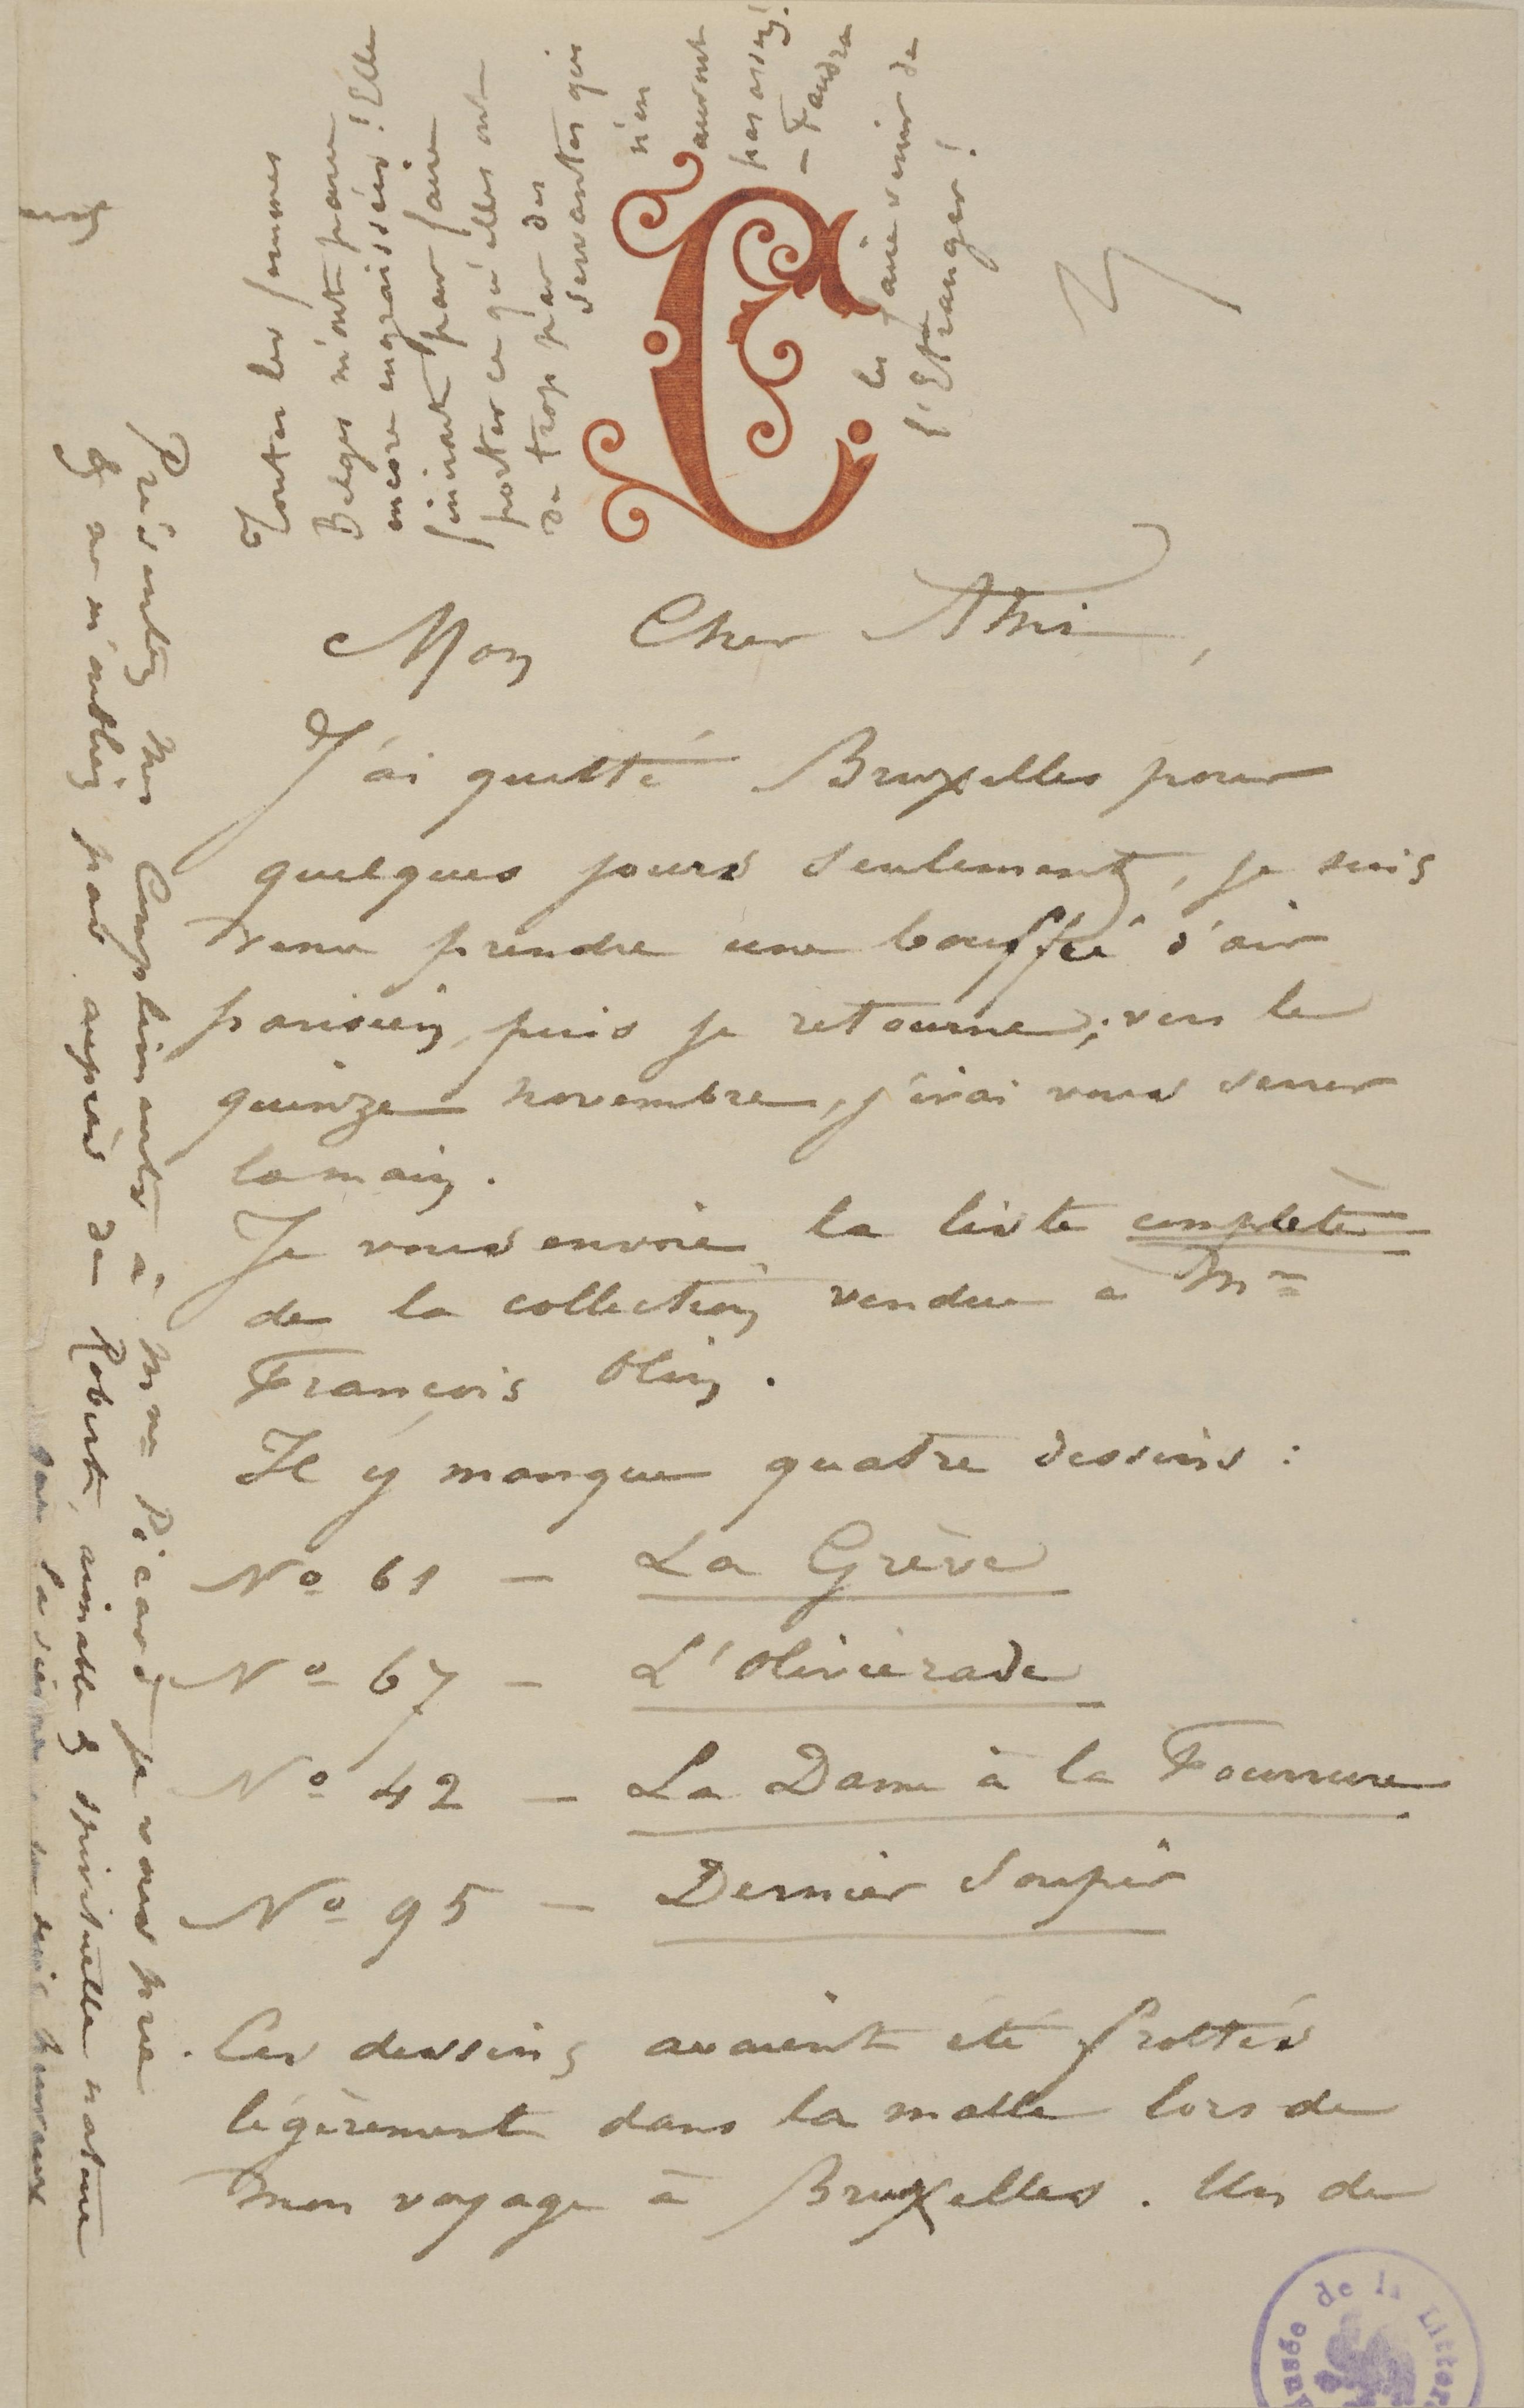 Mon Cher Ami,
J'ai quitté Bruxelles pour
quelques jours seulement, je suis
venu prendre une bouffée d'air
parisien, puis je retourne; vers le
quinze novembre, j'irai vous serrer
la main.
Je vous envoie la liste complète
de la collection vendue à Mme
François Olin.
Il y manque quatre dessins :
No 61 — La Grève
No 67 — L'Oliviérade
No 42 — La Dame à la Fourrure
No 95 — Dernier Soupir
Ces dessins avaient été frottés
légèrement dans la malle lors de
mon voyage à Bruxelles. Un de
Toutes les femmes
Belges n'ont pas
encore engraissées ! Elle
finiront par faire
porter ce qu'elles ont
de trop par des
servantes qui
n'en
auront
pas assez.
– Faudra
les faire venir de
l'Etranger !
Présentez mes Compliments à Mme Picard je vous prie
& ne m'oubliez pas auprès de Robert, aimable & spirituelle nature
Musée de la Litter